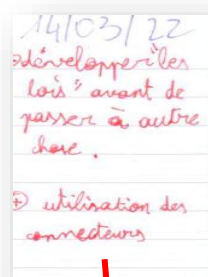 14/03/22
développer "les
lois" avant de
passer à autre
chose.
⊕ utilisation des
connecteurs